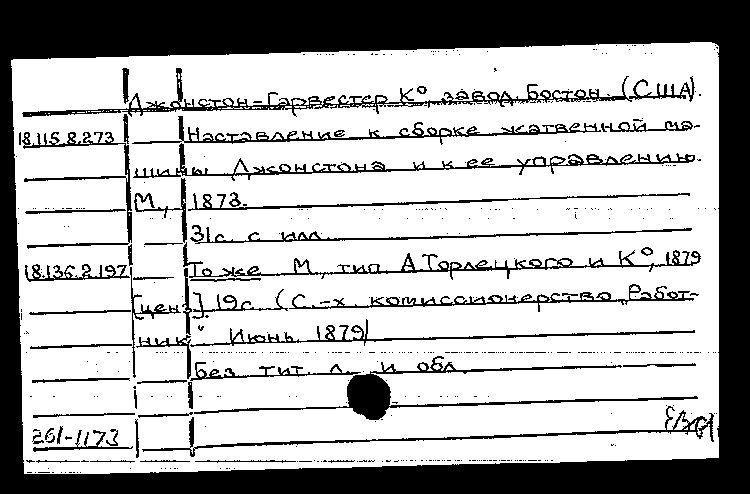 Джонстон-Гарвестер К⁰, завод. Бостон. (США).
18.115.8.273 Наставление к сборке жатвенной ма-
шины Джонстона и к ее управлению.
М., 1873.
31с. с илл.
18.136.2.197 То же М., тип А.Торлецкого и К⁰, 1879
[ценз] 19с. (С.-х. комиссионерство „Работ-
ник" Июнь 1879)
Без тит. л. и обл.
261-1173